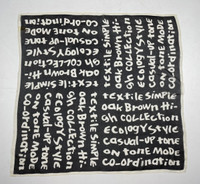 textile simple
oak Brown Hi-
gh collection
ecology style
casual-up tone
on tone mode
co-ordination
textile simple
oak Brown Hi-
gh collection
ecology style
casual-up tone
on tone mode
co-ordination
textile simple
oak Brown Hi-
gh collection
ecology style
casual-up tone
on tone mode
co-ordination
textile simple
oak Brown Hi-
gh collection
ecology style
casual-up tone
on tone mode
co-ordination